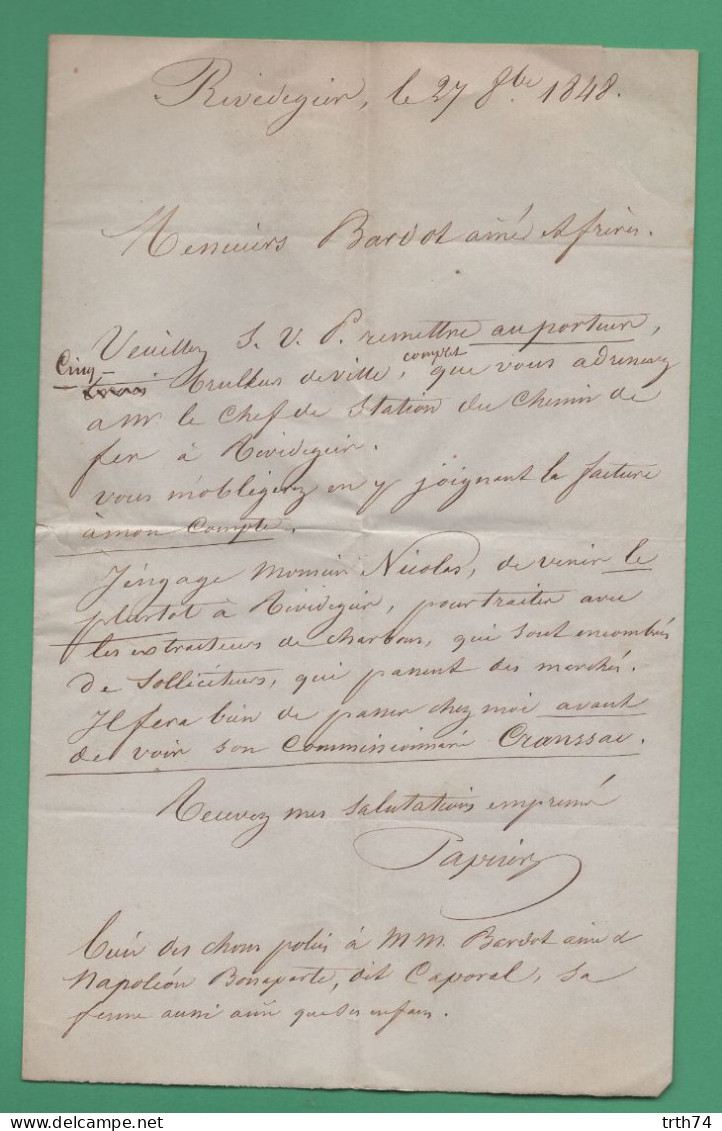 Rivedegier, le 27 8bre 1848.
Messieurs Bardot ainé & frères.
Veuillez S. V. P. remettre au porteur,
Cinq complet
de ville, que vous adresserez
a Mr le Chef de Station du Chemin de
fer à Rivedegier.
vous m'obligerez en y joignant la facture
à mon Compte.
J'engage Monsieur Nicolas, de venir le
plustot à Rivedegier, pour traiter avec
les extracteurs de charbons, qui sont encombrés
de Solliciteurs, qui passent des marchés.
Il fera bien de passer chez moi avant
de voir son Commissionnaire Cranssac.
Recevez mes salutations empressé
bien des choses polies à MM. Bardot ainé &
Napoléon Bonaparte, dit Caporal, sa
femme aussi ainsi que ses enfans.
trth74